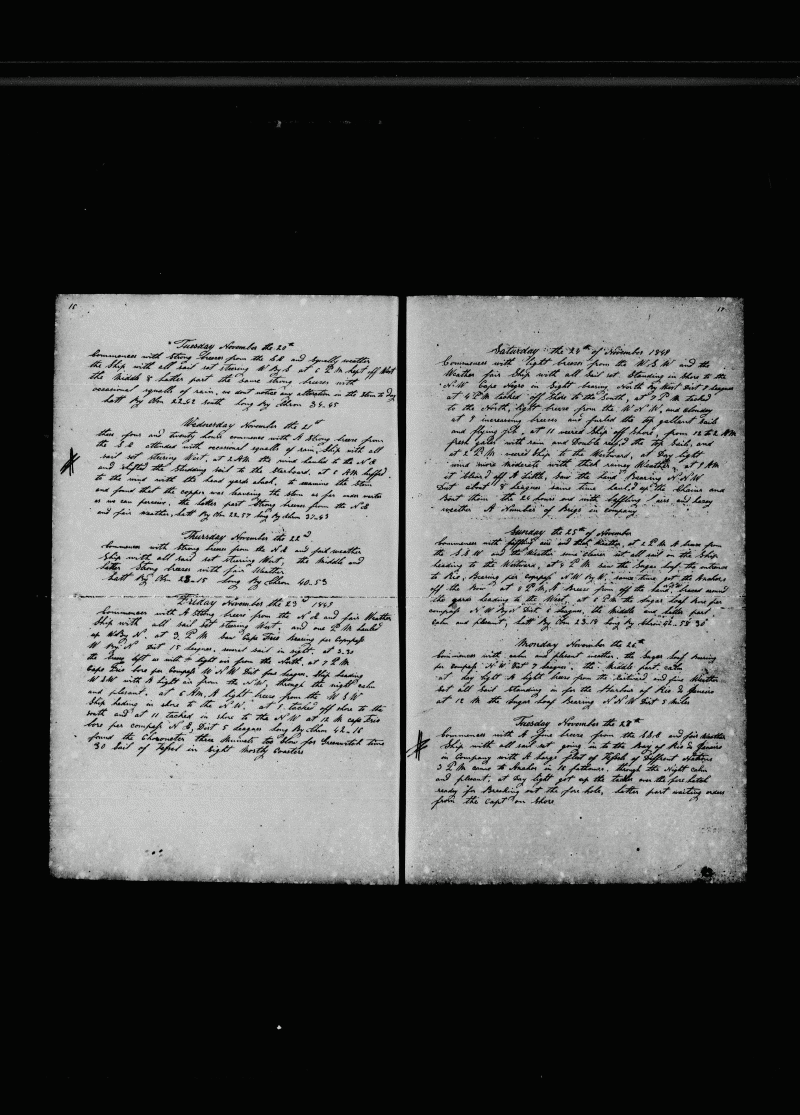 16
Tuesday November the 20th
Commences with Strong breeses from the S.E and squally weather
the Ship with all sail set steering W By S at 6 P M kept off West
the Middle & latter part the same strong breeses with
occasional squalls of rain, we dont notice any alteration in the stem to day
Latt By Obn 22.42 South Long by Chron 34.45
Wednesday November the 21st
these four and twenty hours commences with A Strong breese from
the S E attended with occasional squalls of rain, Ship with all
sail set steering West, at 2 AM the wind hauled to the N E
and shifted the Studding sail to the Starboard, at 6 AM luffed
to the wind with the head yards aback, to examine the stem
and found that the copper was leaving the stem as far under water
as we can perceive, the latter part Strong breeses from the N.E
and fair weather, Latt By Obn 22.57 Long By Chron 37.43
Thursday November the 22nd
Commences with Strong breese from the N.E and fair weather
Ship with all sail set steering West, the Middle and
latter Strong breeses with fair Weather
Latt By Obn 23.15 Long By Chron 40.53
Friday November the 23d 1849
Commences with A Strong breese from the N E and fair Weather
Ship with all sail set steering West, and one P M hauled
up W By N. at 3. P M saw Cape Frio Bearing per Compass
W By N Dist 15 leagues, several sail in sight, at 3.30
the breese left us with light air from the North, at 7 P M
Cape Frio bore per Compass W N W Dist four leagues, Ship heading
W S W with A light air from the N W, through the night calm
and plesent. at 6 AM, A light breese from the W S W
Ship heading in shore to the N W. at 8 tacked off shore to the
south and at 11 tacked in shore to the N W at 12 M cape Frio
bore per compass N E, Dist 5 leagues long By Chron 42.15
found the Chronometer three Minuets too Slow for Greenwitch time
30 Sail of Vessel in Sight Mostly Coasters
17
Saturday the 24th of November 1849
Commences with light breeses from the W.S.W and the
Weather fair Ship with all Sail set. Standing in Shore to the
N.W Cape Negro in Sight bearing North By West Dist 7 leagues
at 4 P M tacked off Shore to the South, at 7 P M tacked
to the North, light breese from the W N W, and cloudy
at 9 increasing breeses and furled the top gallant Sails
and flying jib, at 11 weared Ship off Shore, from 12 to 2 AM
fresh gales with rain and Double reef'd the top Sails, and
at 2 P M weared Ship to the Westward, at Day light
wind more Moderate with thick rainey Weather, at 9 AM
it Clear'd off A little, saw the land Bearing N N W
Dist about 8 leagues same time hauld up the Chains and
Bent them the 24 hours end with baffling airs and hazey
weather A Number of Brigs in company
Sunday the 25th of November
Commences with baffling airs and Weather, at 2 P M A breese from
the S.S.W and the Weather some clearer set all sail on the Ship
heading to the Westward, at 4 P M saw the Sugar loaf, the entrance
to Rio, Bearing per Compass N W By W, same time got the Anchors
off the Bow. at 8 P M, A breese from off the land, braced round
the yards heading to the West, at 6 P M the Sugar loaf bore per
compass N W By N Dist 6 leagues, the Middle and latter part
calm and plesent, Latt By Obn 23.19 long By Chron 42.54.30
Monday November the 26th
Commences with calm and plesent weather, the Sugar loaf Bearing
per compass N W Dist 7 leagues. the Middle part calm
at day light A light breese from the Eastward and fine Weather
Set all Sail Standing in for the Harbour of Rio de Janeiro
at 12 M the Sugar loaf Bearing N N W Dist 5 Miles
Tuesday November the 28th
Commences with A fine breese from the S.S.E and fair Weather
Ship with all sail set going in to the Bay of Rio de Janeiro
in Company with A large fleet of Vessels of Diffrent Nations
3 P M came to Anchor in 12 fathoms, through the Night calm
and plesent, at Day light got up the tackes over the fore hatch
ready for Breaking out the fore hole, latter part waiting orders
from the Capt on Shore